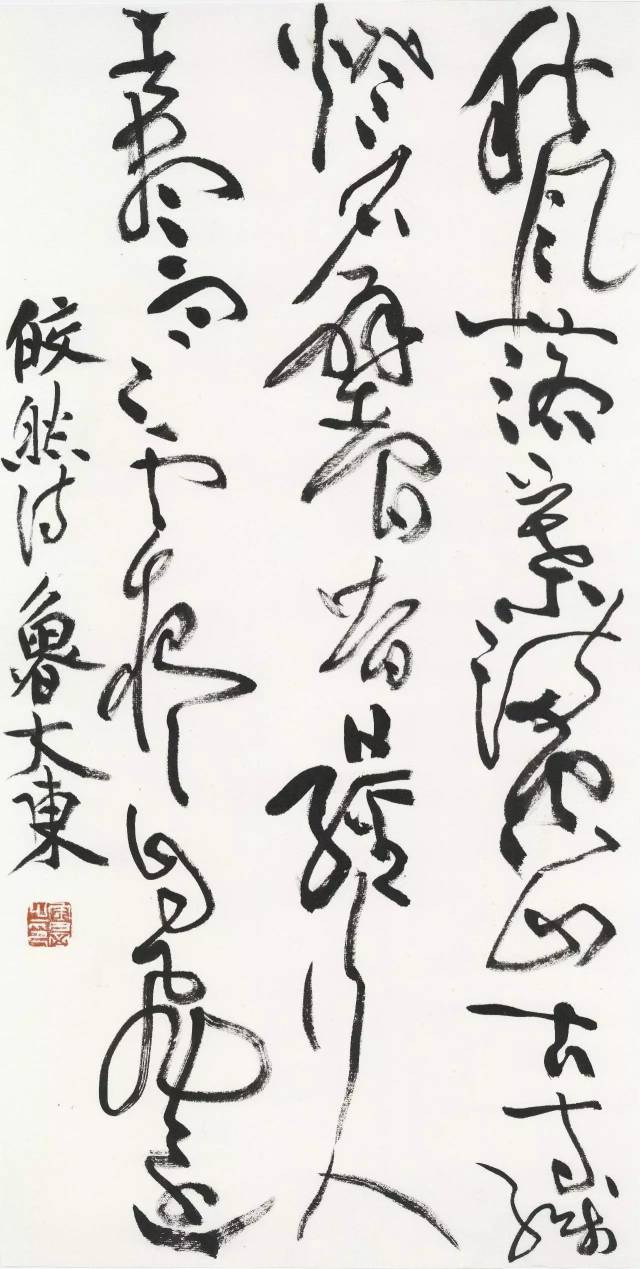 秋風落葉滿空山古寺殘
燈石壁間昔日經行人
去盡寒雲夜々自飛還
皎然詩 魯大東